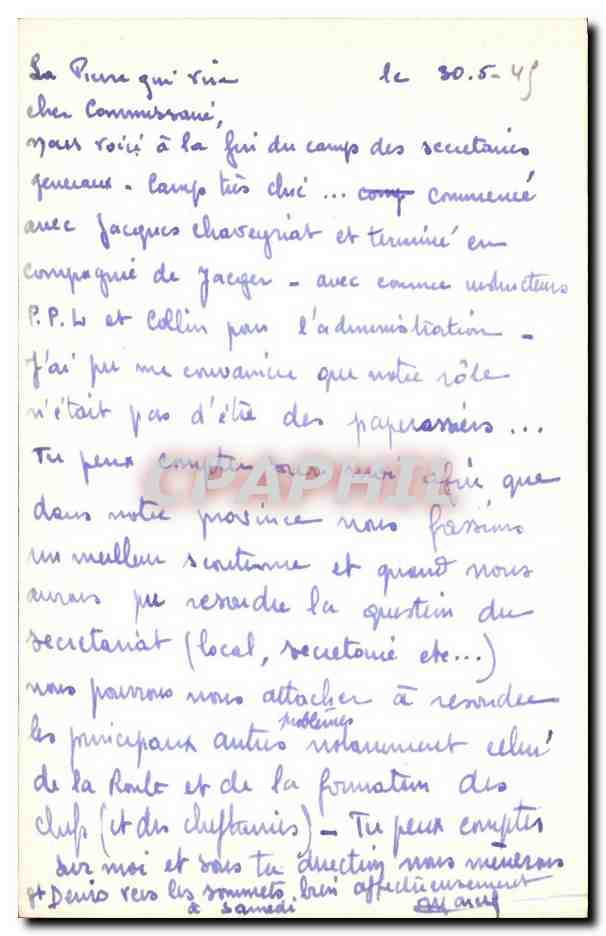 La Pierre qui vire le 30.5-45
cher Commissaire,
nous voici à la fin du camp des secretaires
generaux - Camp très chic ... comp commencé
avec Jacques Chaveyriat et terminé en
compagnie de Jaeger - avec comme instructeurs
P.P.L et Collin pour l'administration -
J'ai pu me convaincre que notre rôle
n'était pas d'être des paperassiers ...
Tu peux compter sur moi afin que
dans notre province nous fassions
un meilleur scoutisme et quand nous
aurons pu resoudre la question du
secretariat (local, secretaire etc...)
nous pourrons nous attacher à resoudre
problèmes
les principaux autres notamment celui
de la Route et de la formation des
chefs (et des cheftaines) - Tu peux compter
sur moi et sous ta direction nous mènerons
St Denis vers les sommets, bien affectueusement
à samedi
CPAPHIL